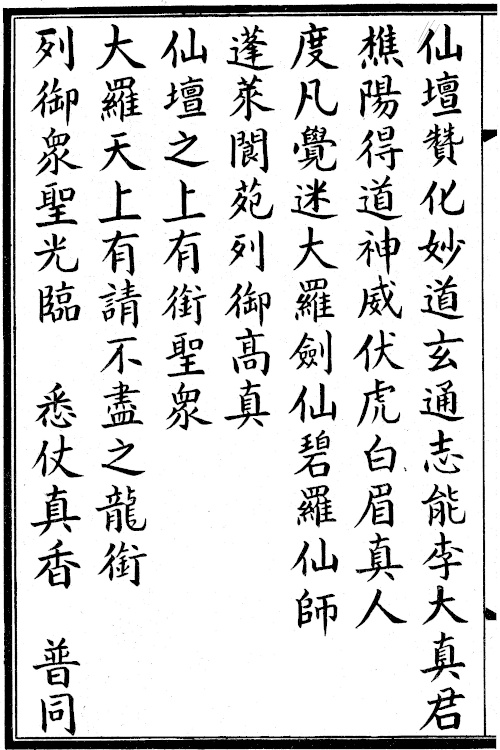 仙壇贊化妙道玄通志能李大真君
樵陽得道神威伏虎白眉真人
度凡覺迷大羅劍仙碧羅仙師
蓬萊閬苑列御高真
仙壇之上有銜聖眾
大羅天上有請不盡之龍銜
列御眾聖光臨　悉仗真香　普同